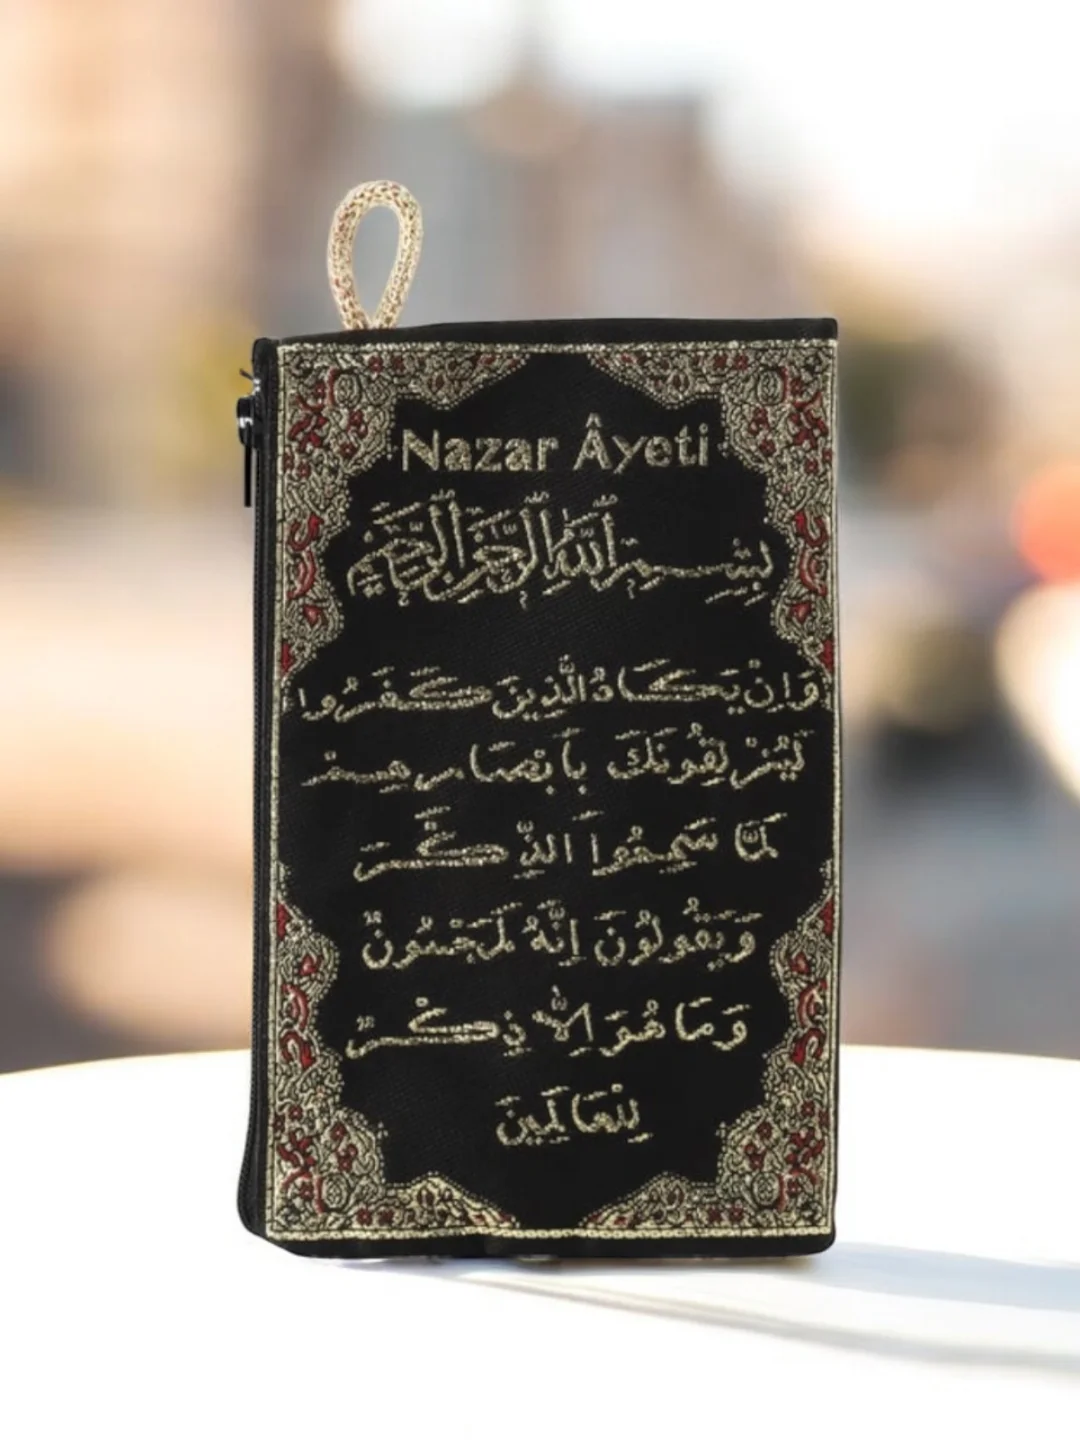 Nazar Âyeti
بِسْمِ اللَّهِ الرَّحْمَنِ الرَّحِيمِ
وَاِنْ يَكَادُ الَّذِينَ كَفَرُوا
لَيُزْلِقُونَكَ بِاَبْصَارِهِمْ
لَمَّا سَمِعُوا الذِّكْرَ
وَيَقُولُونَ اِنَّهُ لَمَجْنُونٌ
وَمَا هُوَ اِلَّا ذِكْرٌ
لِلْعَالَمِينَ